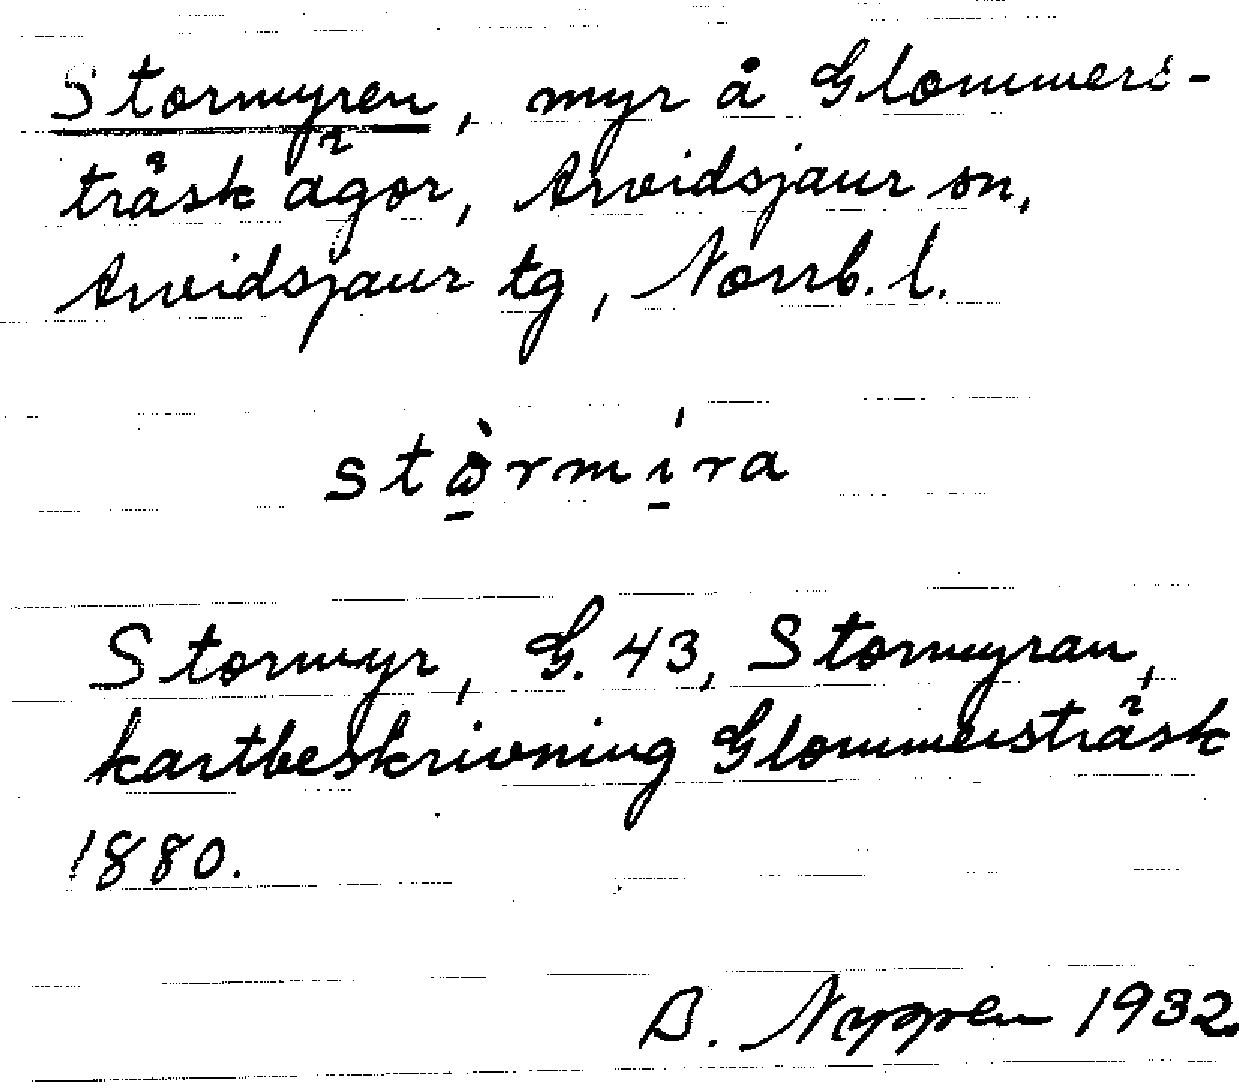 Stormyren, myr å Glommers-
träsk ägor, Arvidsjaur sn,
Arvidsjaur tg, Norrb. l.
stὼ̲rmı̲́ra
Stormyr, G. 43, Stormyran,
kartbeskrivning Glommersträsk
1880.
B. 1932.